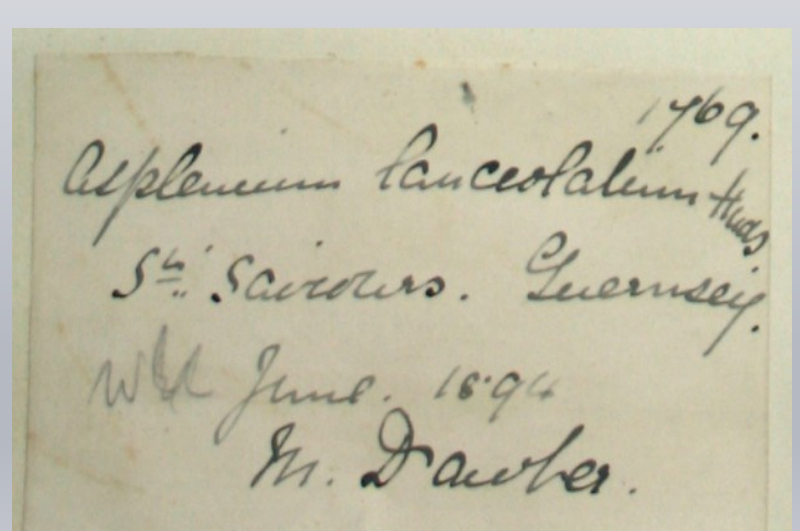 1769.
Asplenium lanceolatum Huds
St. Saviours. Guernsey.
June. 1894
M. Dawber.